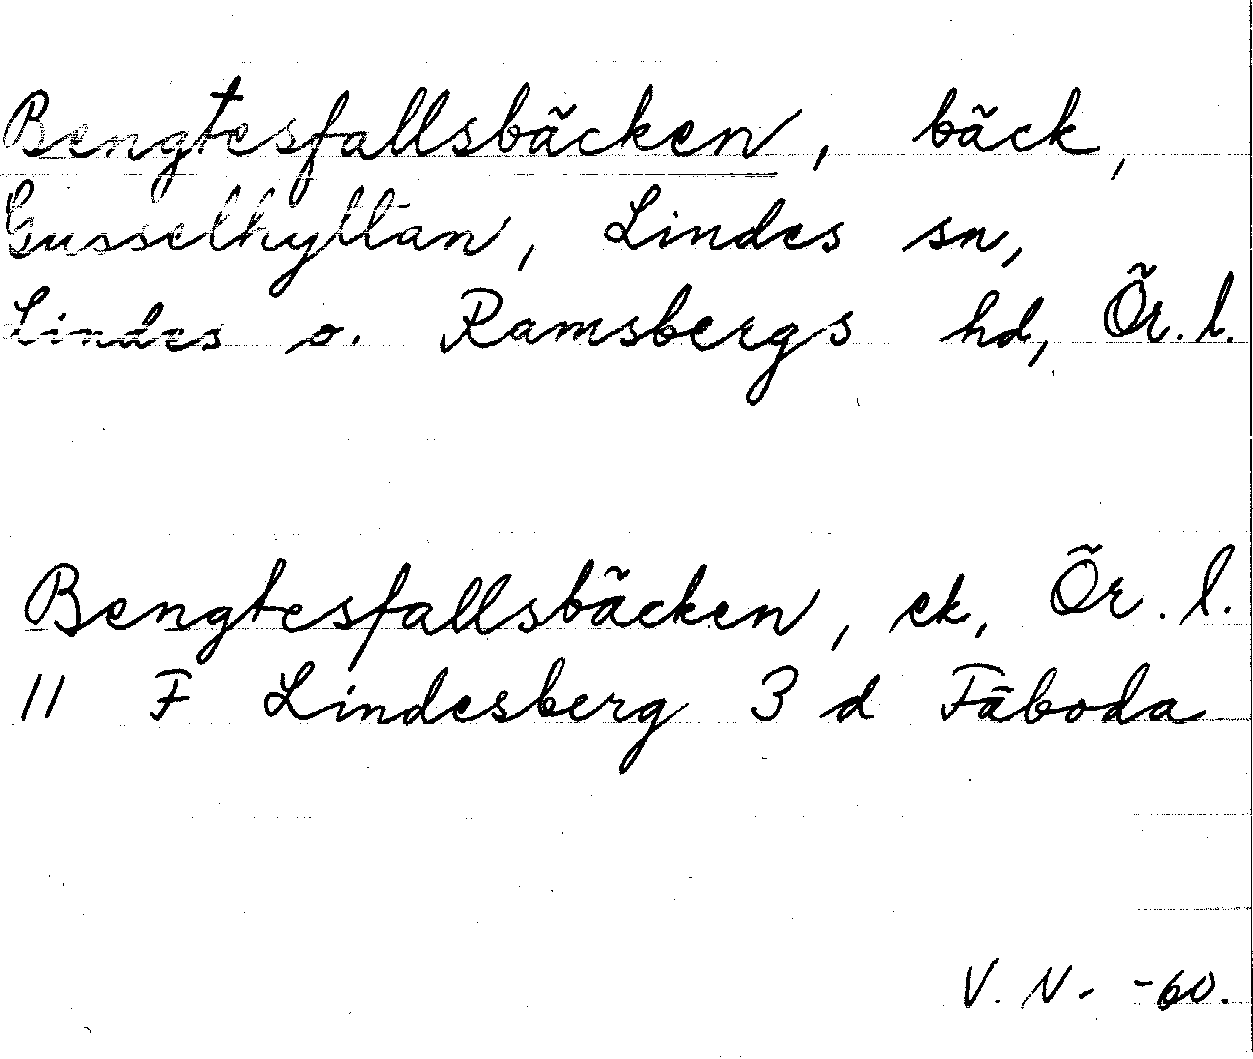 Bengtesfallsbäcken, bäck,
Gusselhyttan, Lindes sn,
Lindes o. Ramsbergs hd, Ör. l.
Bengtesfallsbäcken, ek, Ör. l.
11 F Lindesberg 3 d Fäboda
V. N. -60.